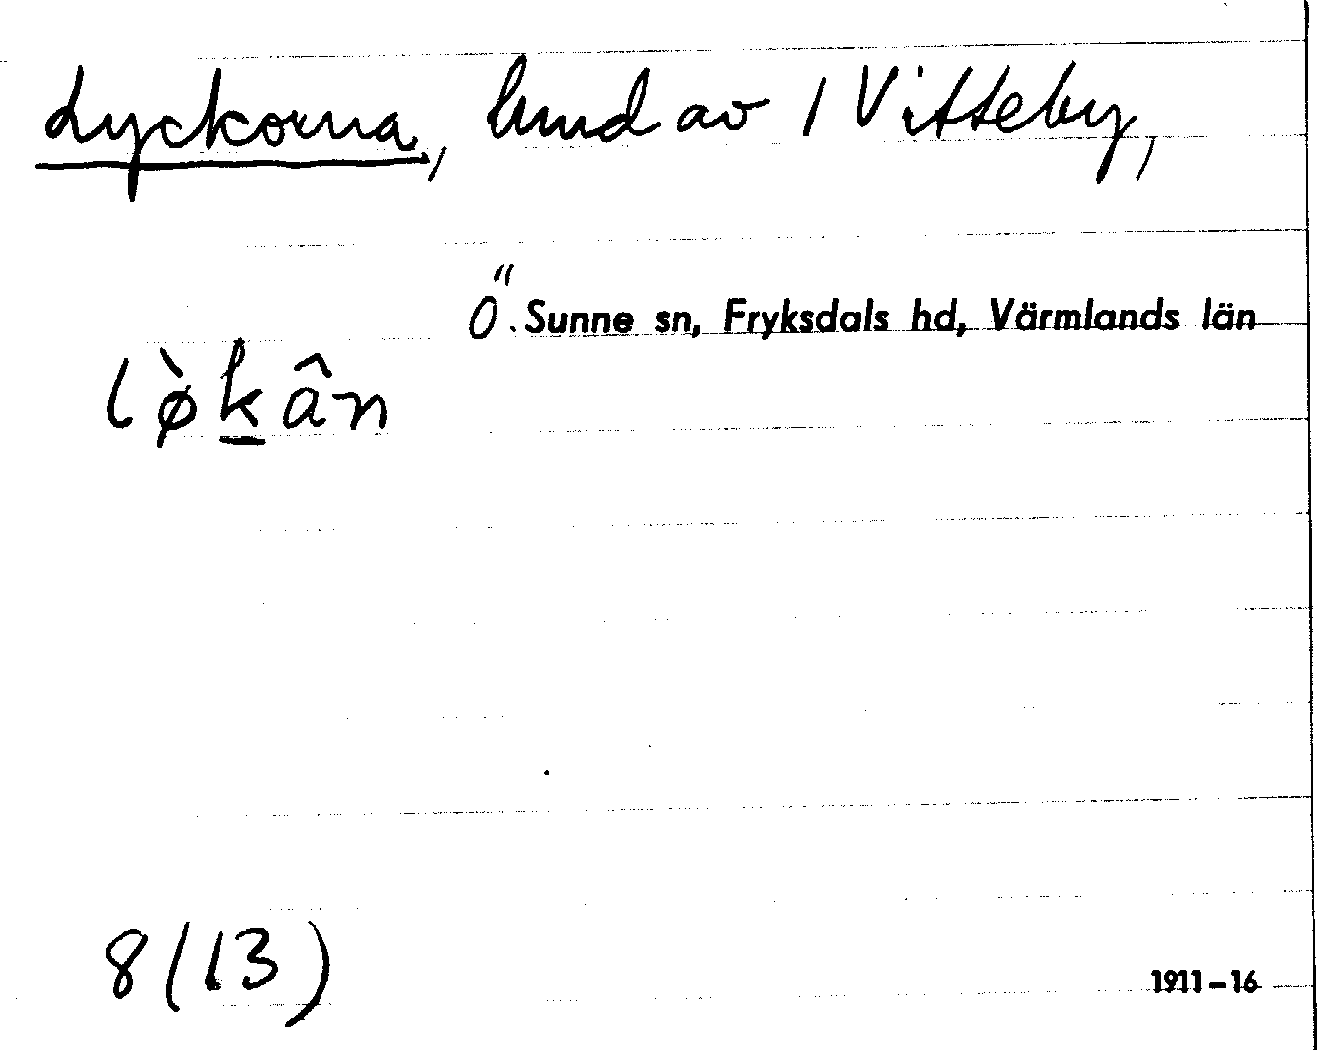 Lyckorna, hmd av 1 Vitteby,
Ö. Sunne sn, Fryksdals hd, Värmlands län
lø̀kân
8(13)
1911-16